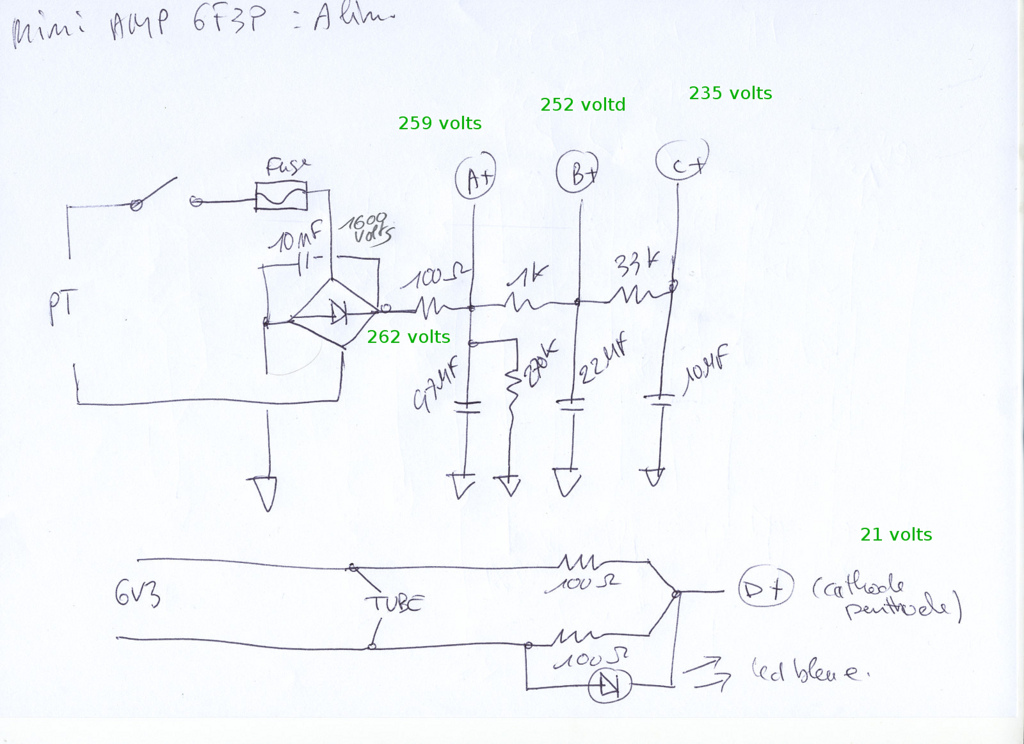 mini AMP 6F3P : Alim.
235 volts
252 voltd
259 volts
A+
B+
C+
Fuse
10nF
1600 volts
100Ω
1K
33K
PT
262 volts
47µF
270K
22µF
10µF
21 volts
6V3
TUBE
100Ω
D+
(cathode
penthode)
100Ω
led bleue.